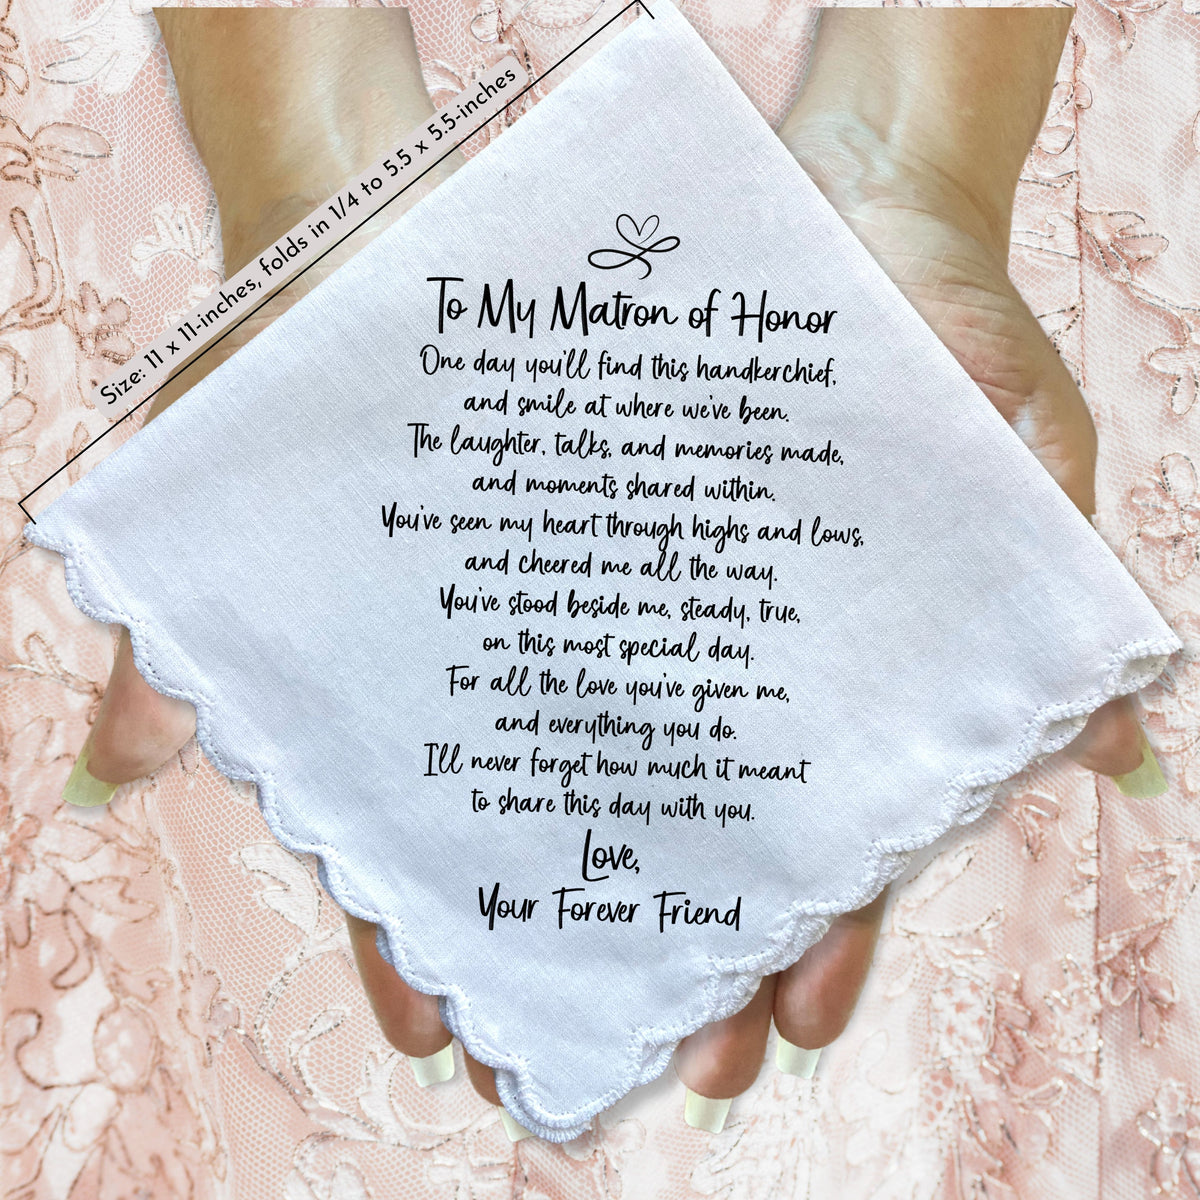 Size: 11 x 11-inches, folds in 1/4 to 5.5 x 5.5-inches
To My Matron of Honor
One day you'll find this handkerchief,
and smile at where we've been.
The laughter, talks, and memories made,
and moments shared within.
You've seen my heart through highs and lows,
and cheered me all the way.
You've stood beside me, steady, true,
on this most special day.
For all the love you've given me,
and everything you do.
I'll never forget how much it meant
to share this day with you.
Love,
Your Forever Friend